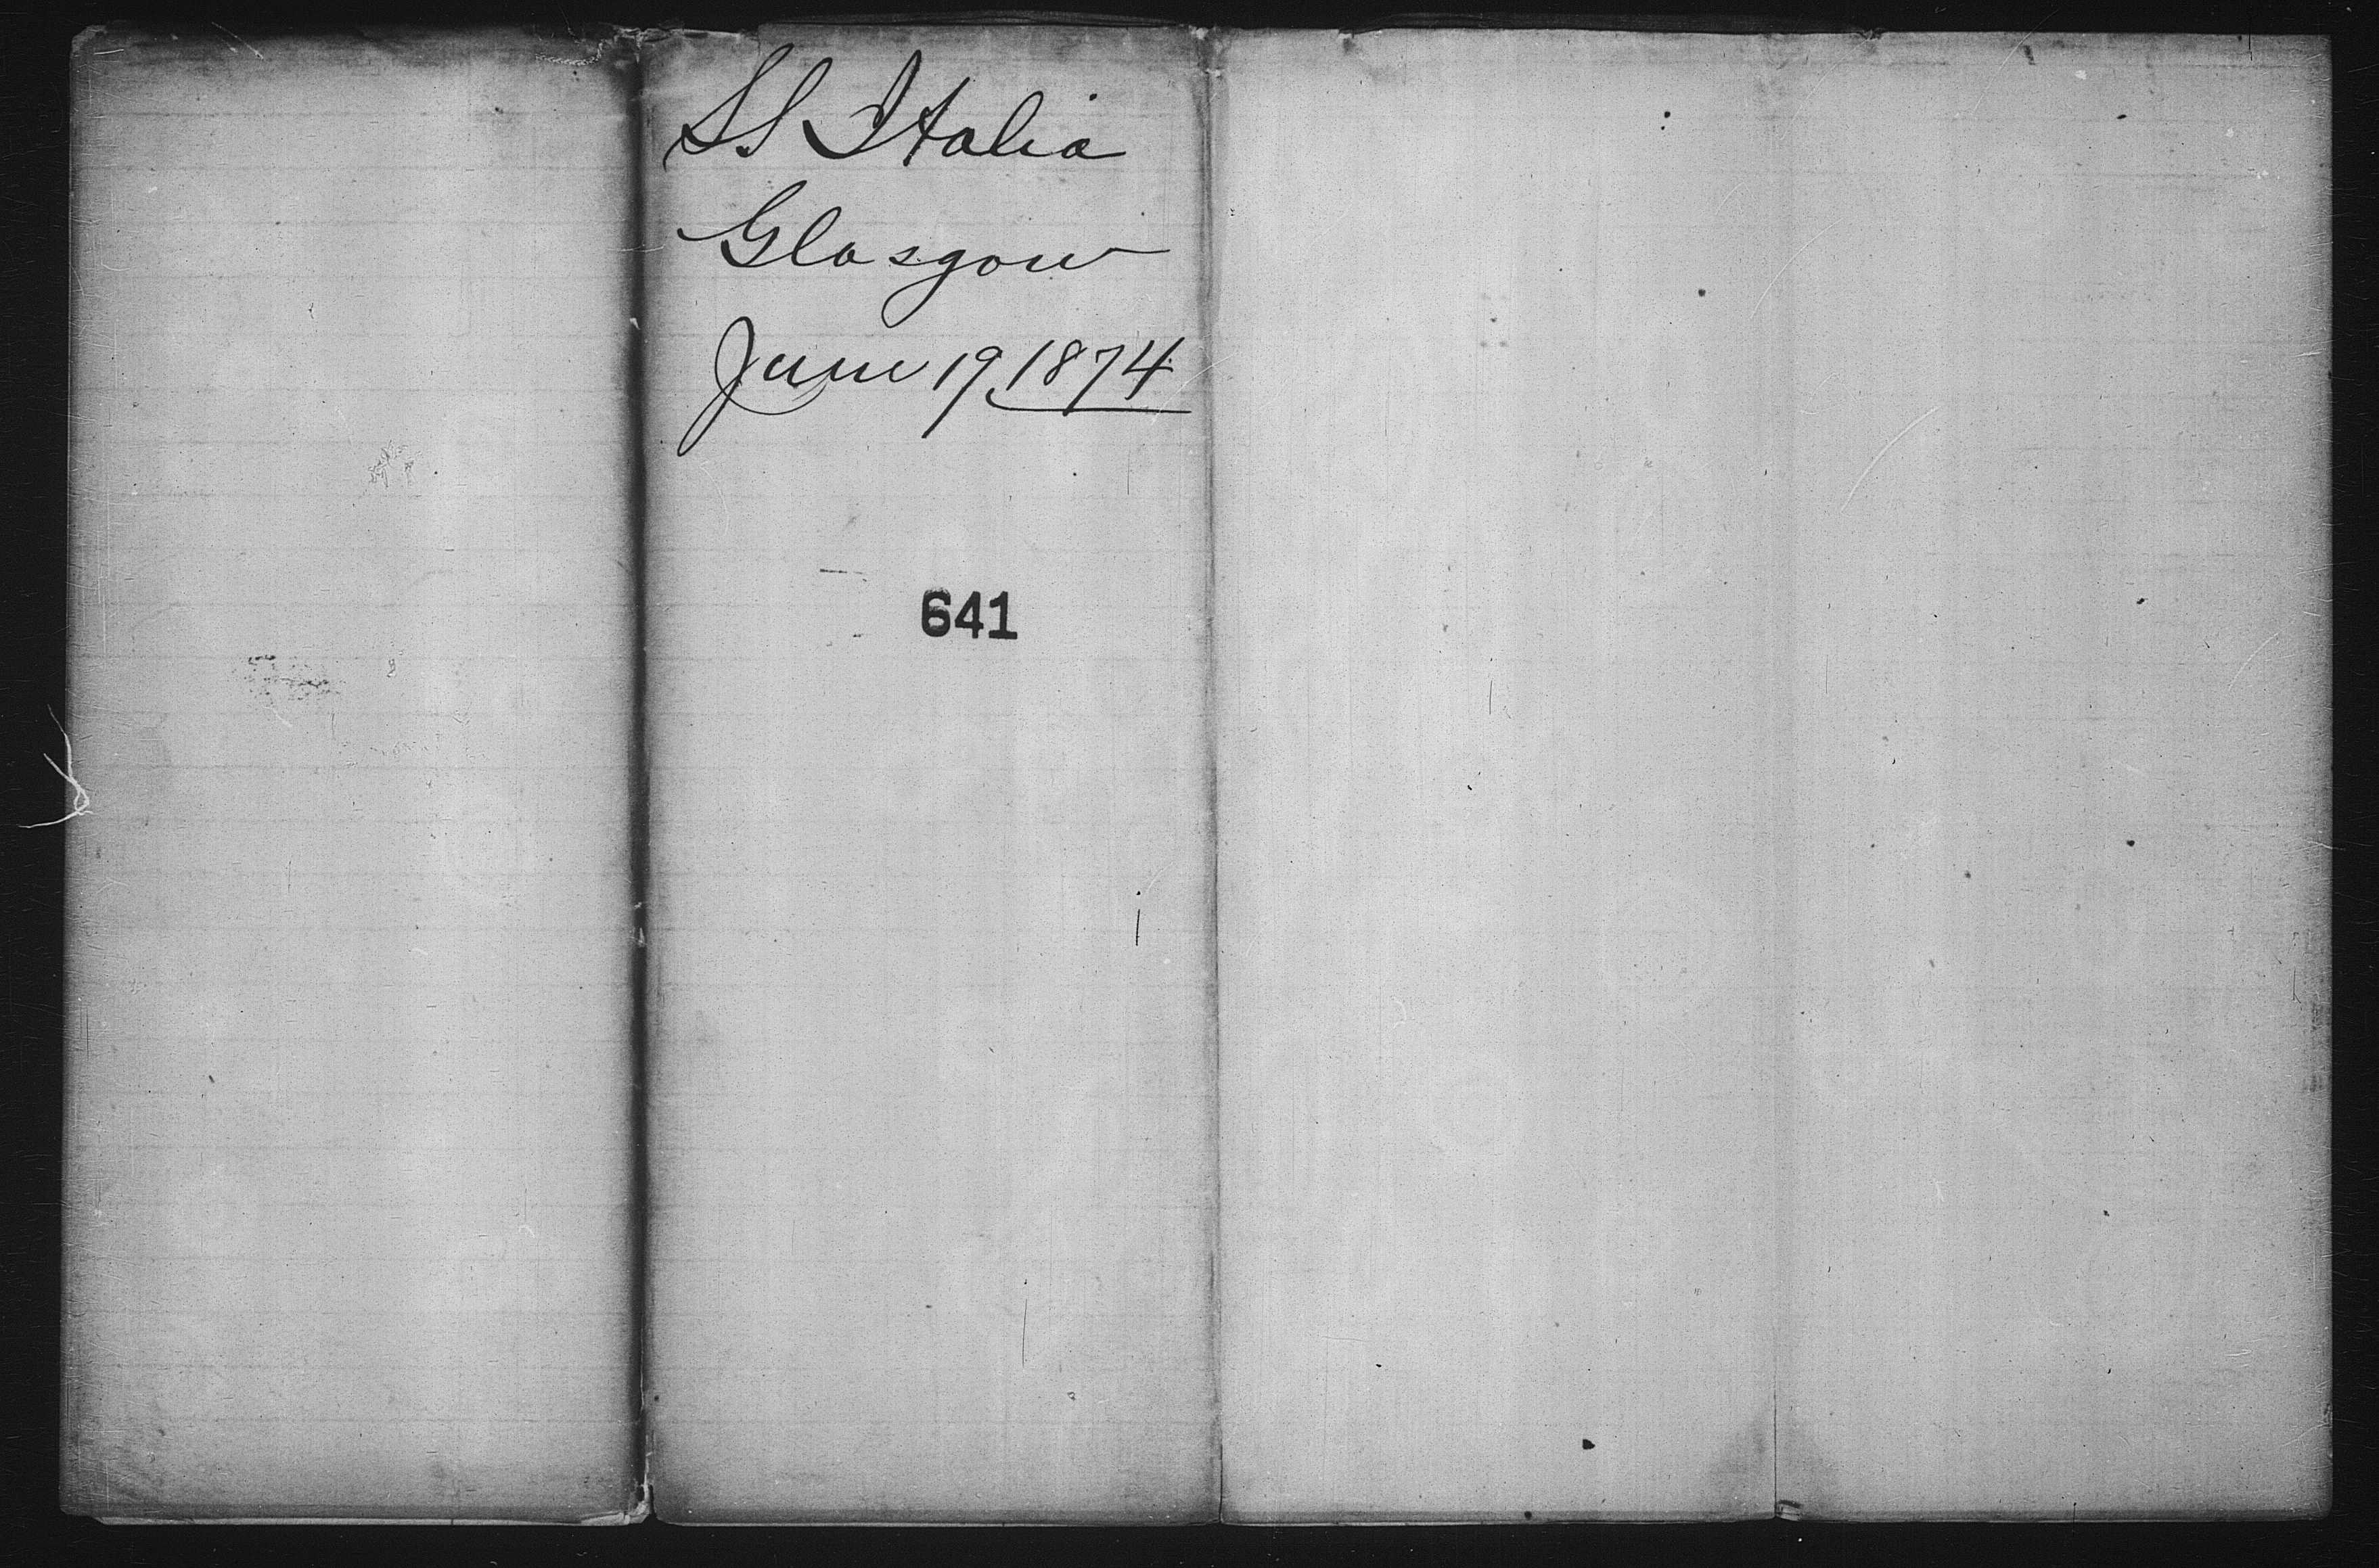 SS Italia
Glasgow
June 19, 1874
641